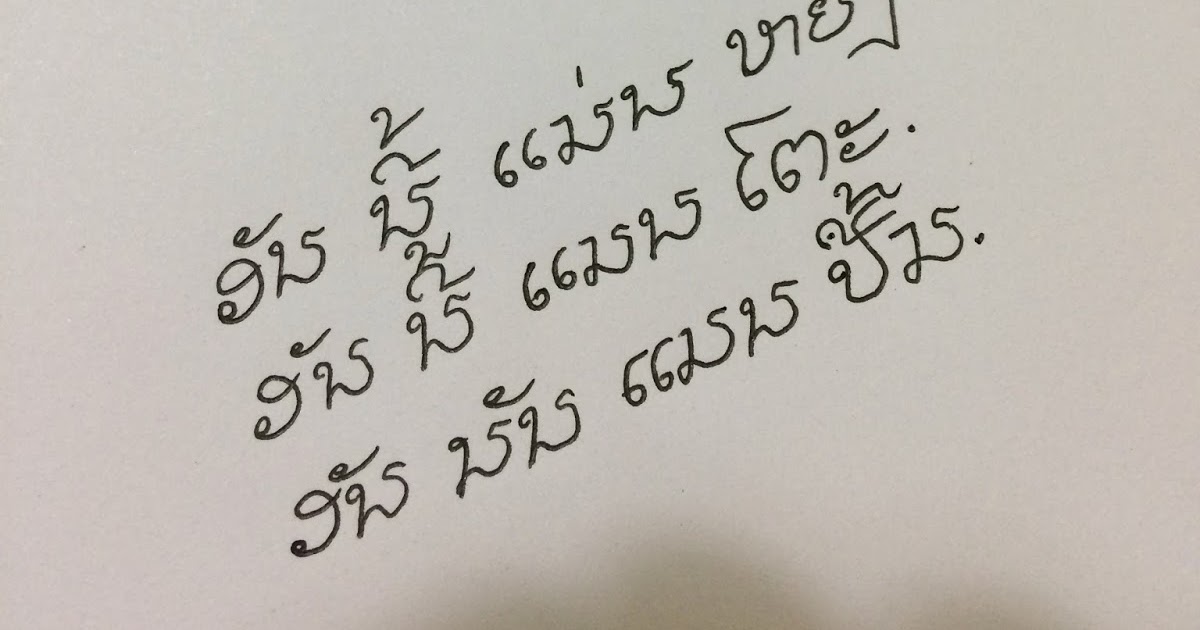 ອັນ ນີ້ ແມ່ນ
ອັນ ນີ້ ແມນ ໂຕະ.
ອັນ ນັນ ແມນ ປຶ້ມ.